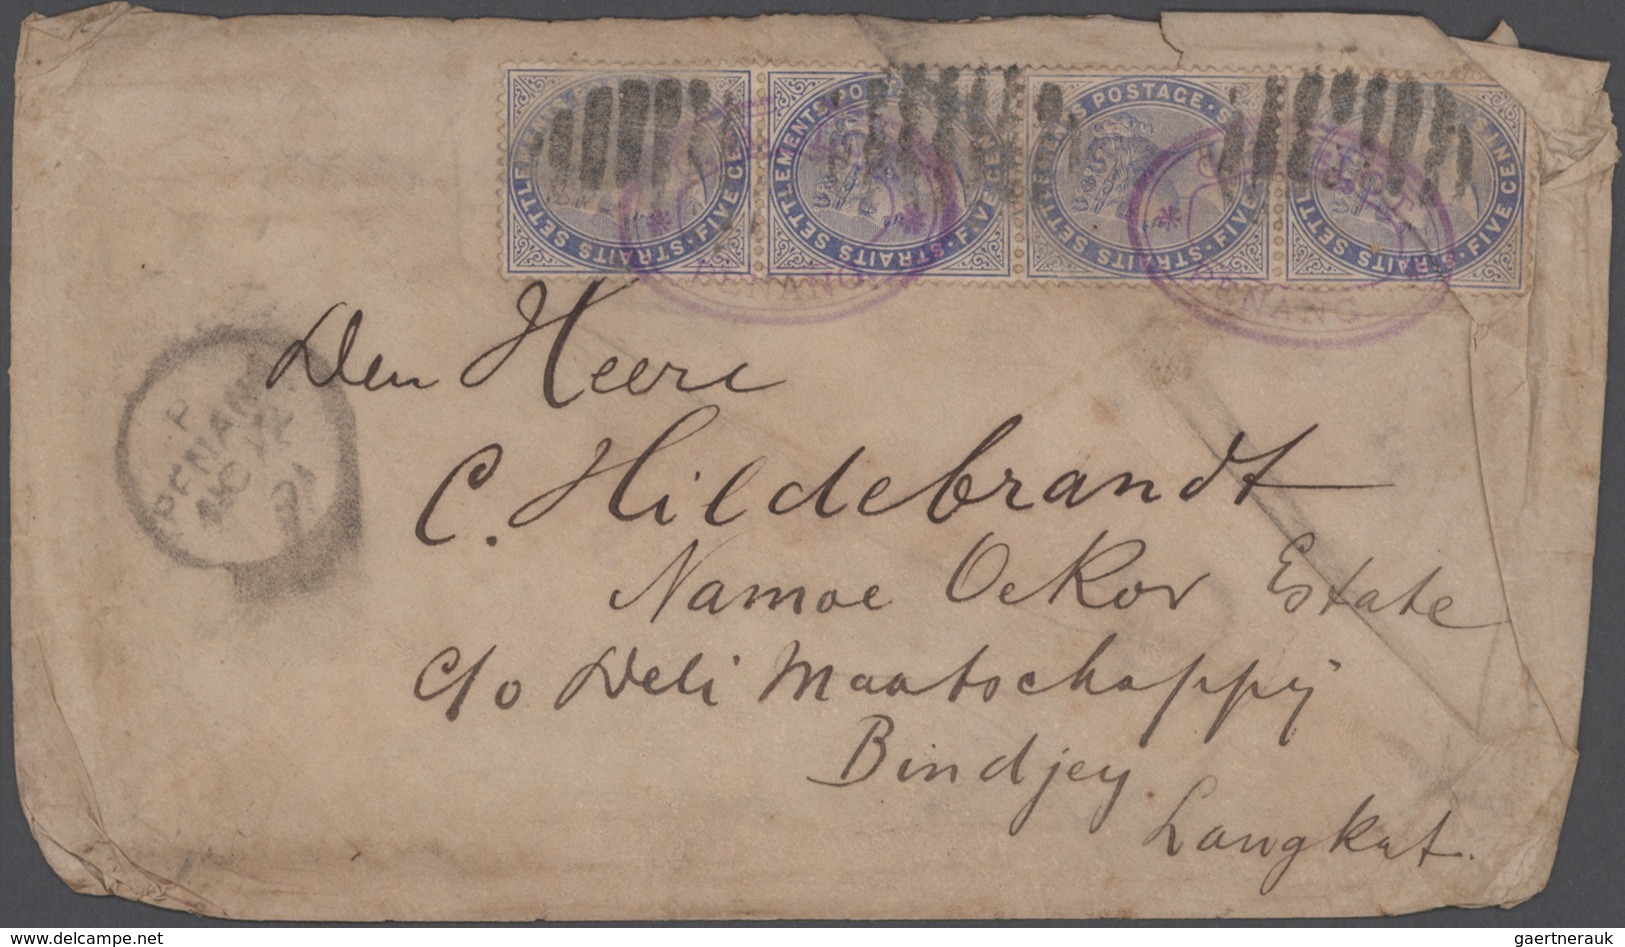 STRAITS SETTLEMENTS POSTAGE · FIVE CENTS
STRAITS SETTLEMENTS POSTAGE · FIVE CENTS
STRAITS SETTLEMENTS POSTAGE · FIVE CENTS
STRAITS SETTLEMENTS POSTAGE · FIVE CENTS
PENANG
PENANG
P
PENANG
91
Den Heere
C. Hildebrandt
Namoe Oekor Estate
c/o Deli Maatschappij
Bindjey
Langkat.
www.delcampe.net
gaertnerauk